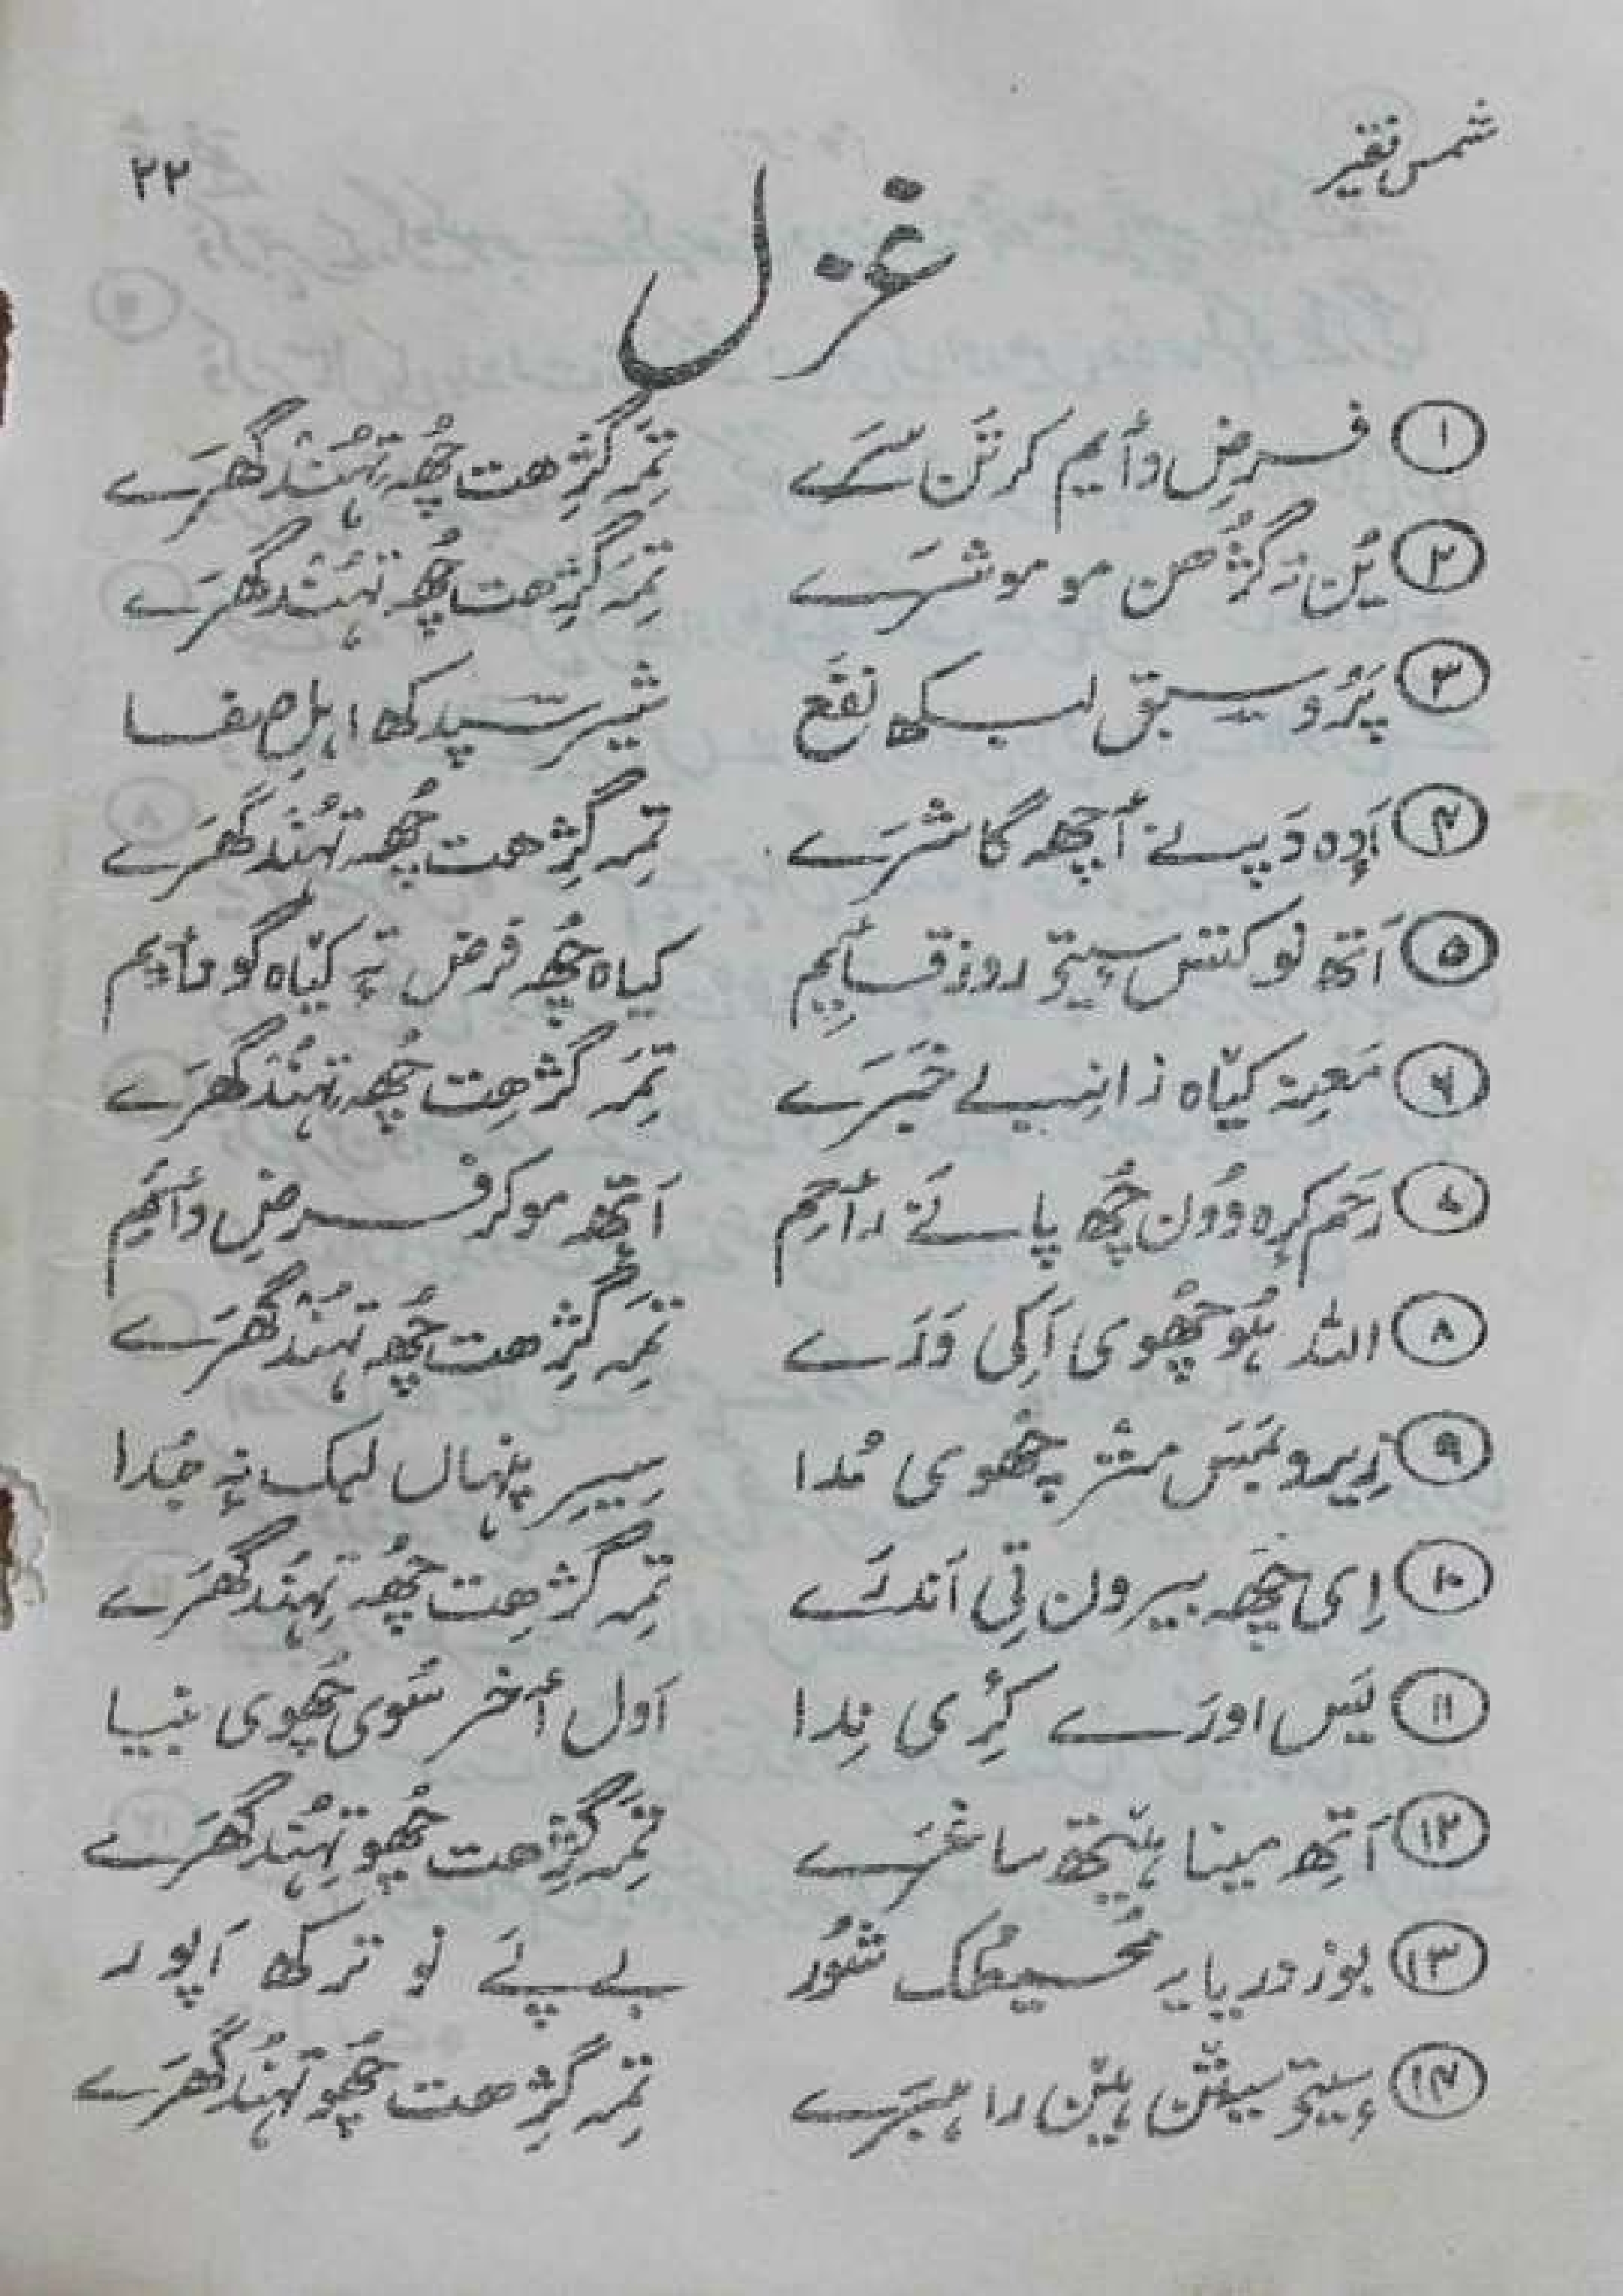 شمس فقیر
۲۲
غزل
۱ فرضِ دأیم کر تَن سَرَے تِمَہ گژِھت چُھہ تہُند گھرَے
۲ یُن نہ گژُھن مو موشرَے تِمَہ گژِھت چُھہ تہُند گھرَے
۳ پَرُو سبق لیکھ نفع شیر سَپدکھ اہلِ صفا
۴ اَدِہ دَپسے أچھ گاشرَے تِمہ گژِھت چُھہ تہُند گھرَے
۵ اَتھ نوکتس سِیتۍ روز قایِم کیاہ چُھہ فرض تہٕ کیّاہ گو دأیم
۶ مَعنہ کیّاہ زانِہے خبَرَے تِمَہ گژھِت چُھہ تہُند گھرَے
۷ رَحَم کرِہ وول چُھہ پانَے رأحِم اَتھۍ مو کر فرضِ دأیِم
۸ اللہ ہُو چُھوی اَکی وَرَے تِمَہ گژِھت چُھہ تہُند گھرَے
۹ زیرو بَمَس منز چُھوی مُدا سِیرِ پنہاں لیک نہ جُدا
۱۰ اِی چُھہ بیرون تی اَندرَے تِمہ گژھِت چُھہ تہُند گھرَے
۱۱ یَس اورَے کَرِی نِدا اَول أخر سُوی چُھوی بنیا
۱۲ اَتھ مینا ہیتھ ساغرَے تِمَہ گژِھت چُھو تہُند گھرَے
۱۳ بوز دریایہ مُحیطُک شور بے پَے نو ترکھ اَپور
۱۴ سِیتۍ سیتن ہیّن راہبَرَے تِمہ گژِھت چُھو تہُند گھرَے